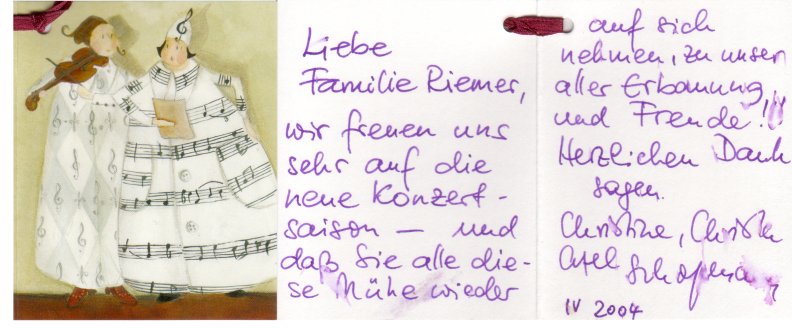 Liebe
Familie Riemer,
wir freuen uns
sehr auf die
neue Konzert-
saison – und
daß Sie alle die-
se Mühe wieder
auf sich
nehmen, zu unser
aller Erbauung
und Freude!
Herzlichen Dank
sagen
Christine,
Axel
IV 2004